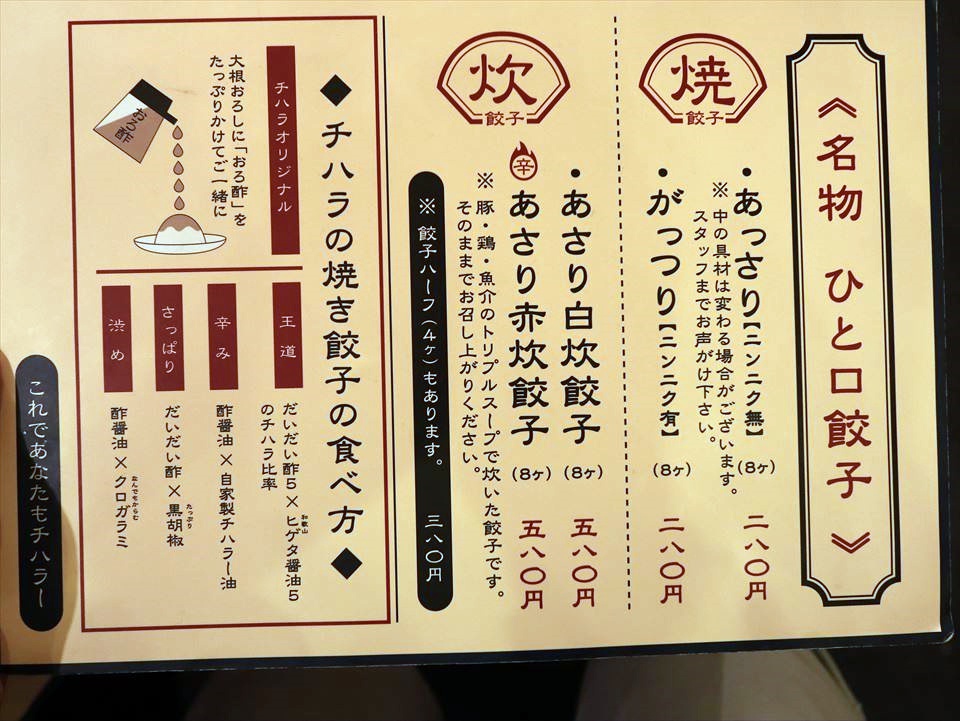 《名物 ひと口餃子》
焼
餃子
・あっさり【ニンニク無】(8ヶ) 二八〇円
※中の具材は変わる場合がございます。
スタッフまでお声がけ下さい。
・がっつり【ニンニク有】(8ヶ) 二八〇円
炊
餃子
・あさり白炊餃子(8ヶ) 五八〇円
辛 あさり赤炊餃子(8ヶ) 五八〇円
※豚・鶏・魚介のトリプルスープで炊いた餃子です。
そのままでお召し上がりください。
※餃子ハーフ(4ヶ)もあります。 三八〇円
◆チハラの焼き餃子の食べ方◆
チハラオリジナル
大根おろしに「おろ酢」を
たっぷりかけてご一緒に
おろ酢
王道
だいだい酢5×ヒゲタ醤油5
和歌山
のチハラ比率
辛み
酢醤油×自家製チハラー油
さっぱり
だいだい酢×黒胡椒
たっぷり
渋め
酢醤油×クロガラミ
なんでもからむ
これであなたもチハラー